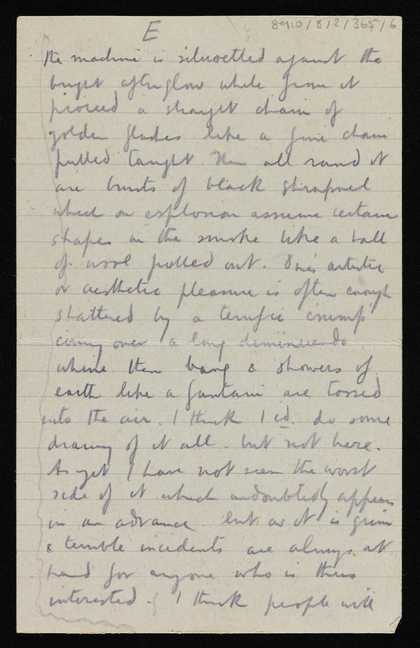 E
8910/8/2/365/6
the machine is silhouetted against the
bright afterglow while from it
proceed a straight chain of
golden flashes like a fine chain
pulled taught. Then all round it
are bursts of black shrapnel
which on explosion assume certain
shapes in the smoke like a ball
of wool pulled out. One's artistic
or aesthetic pleasure is often enough
shattered by a terrific crump
coming over a long diminuendo
whine then bang & showers of
earth like a fountain are tossed
into the air. I think I cd. do some
drawing of it all. but not here.
As yet I have not seen the worst
side of it which undoubtedly appears
in an advance but as it is grim
& terrible incidents are always at
hand for anyone who is thus
interested. I think people will